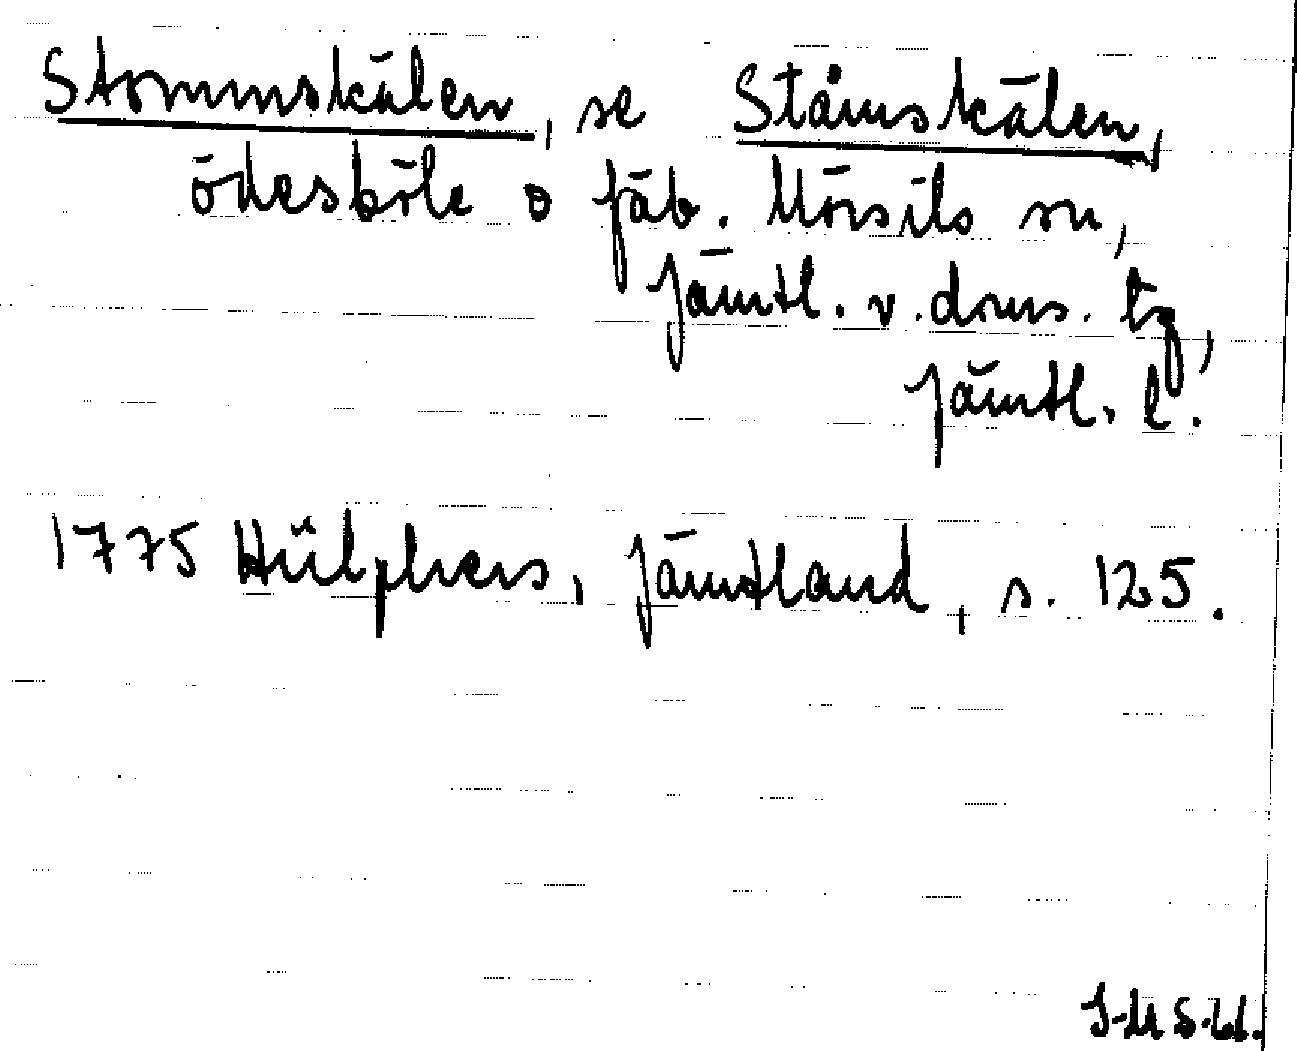 Stommskälen, se Ståmskälen,
ödesböle o fäb. Mörsils sn,
Jämtl. v. doms. tg,
Jämtl. l.
1775 Hülphers, Jämtland, s. 125.